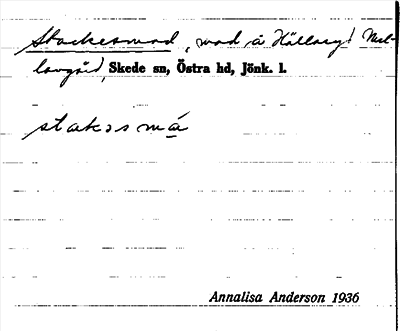 Stockesmad, mad å Hällaryd Mel-
langård, Skede sn, Östra hd, Jönk. l.
stakɔsmá
Annalisa Anderson 1936